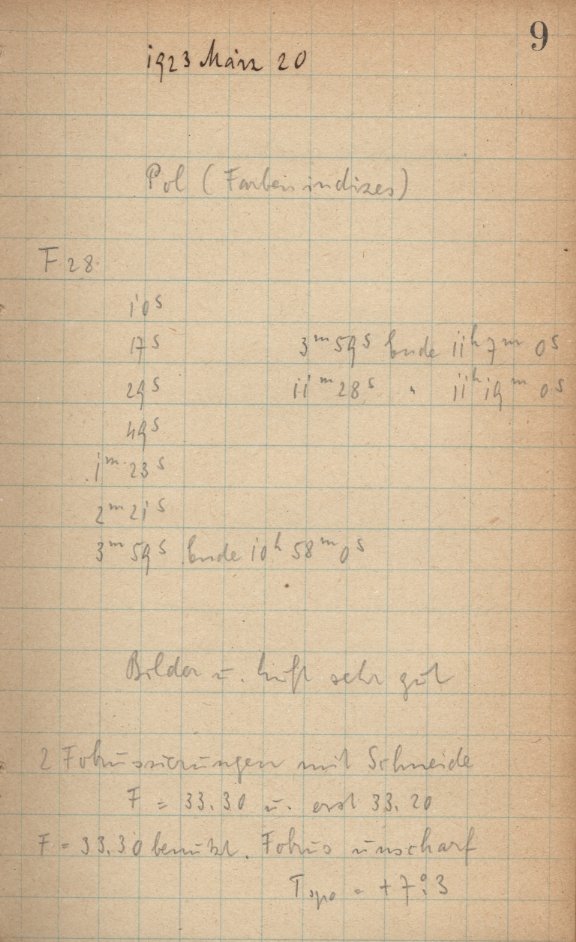 9
1923 März 20
Pol (Farbenindizes)
F 28.
10s
17s 3m 59s Ende 11h 7m 0s
29s 11m 28s " 11h 19m 0s
49s
1m 23s
2m 21s
3m 59s Ende 10h 58m 0s
Bilder u. Luft sehr gut
2 Fokussierungen mit Schneide
F = 33.30 u. erst 33.20
F = 33.30 benutzt. Fokus unscharf
= +7°.3